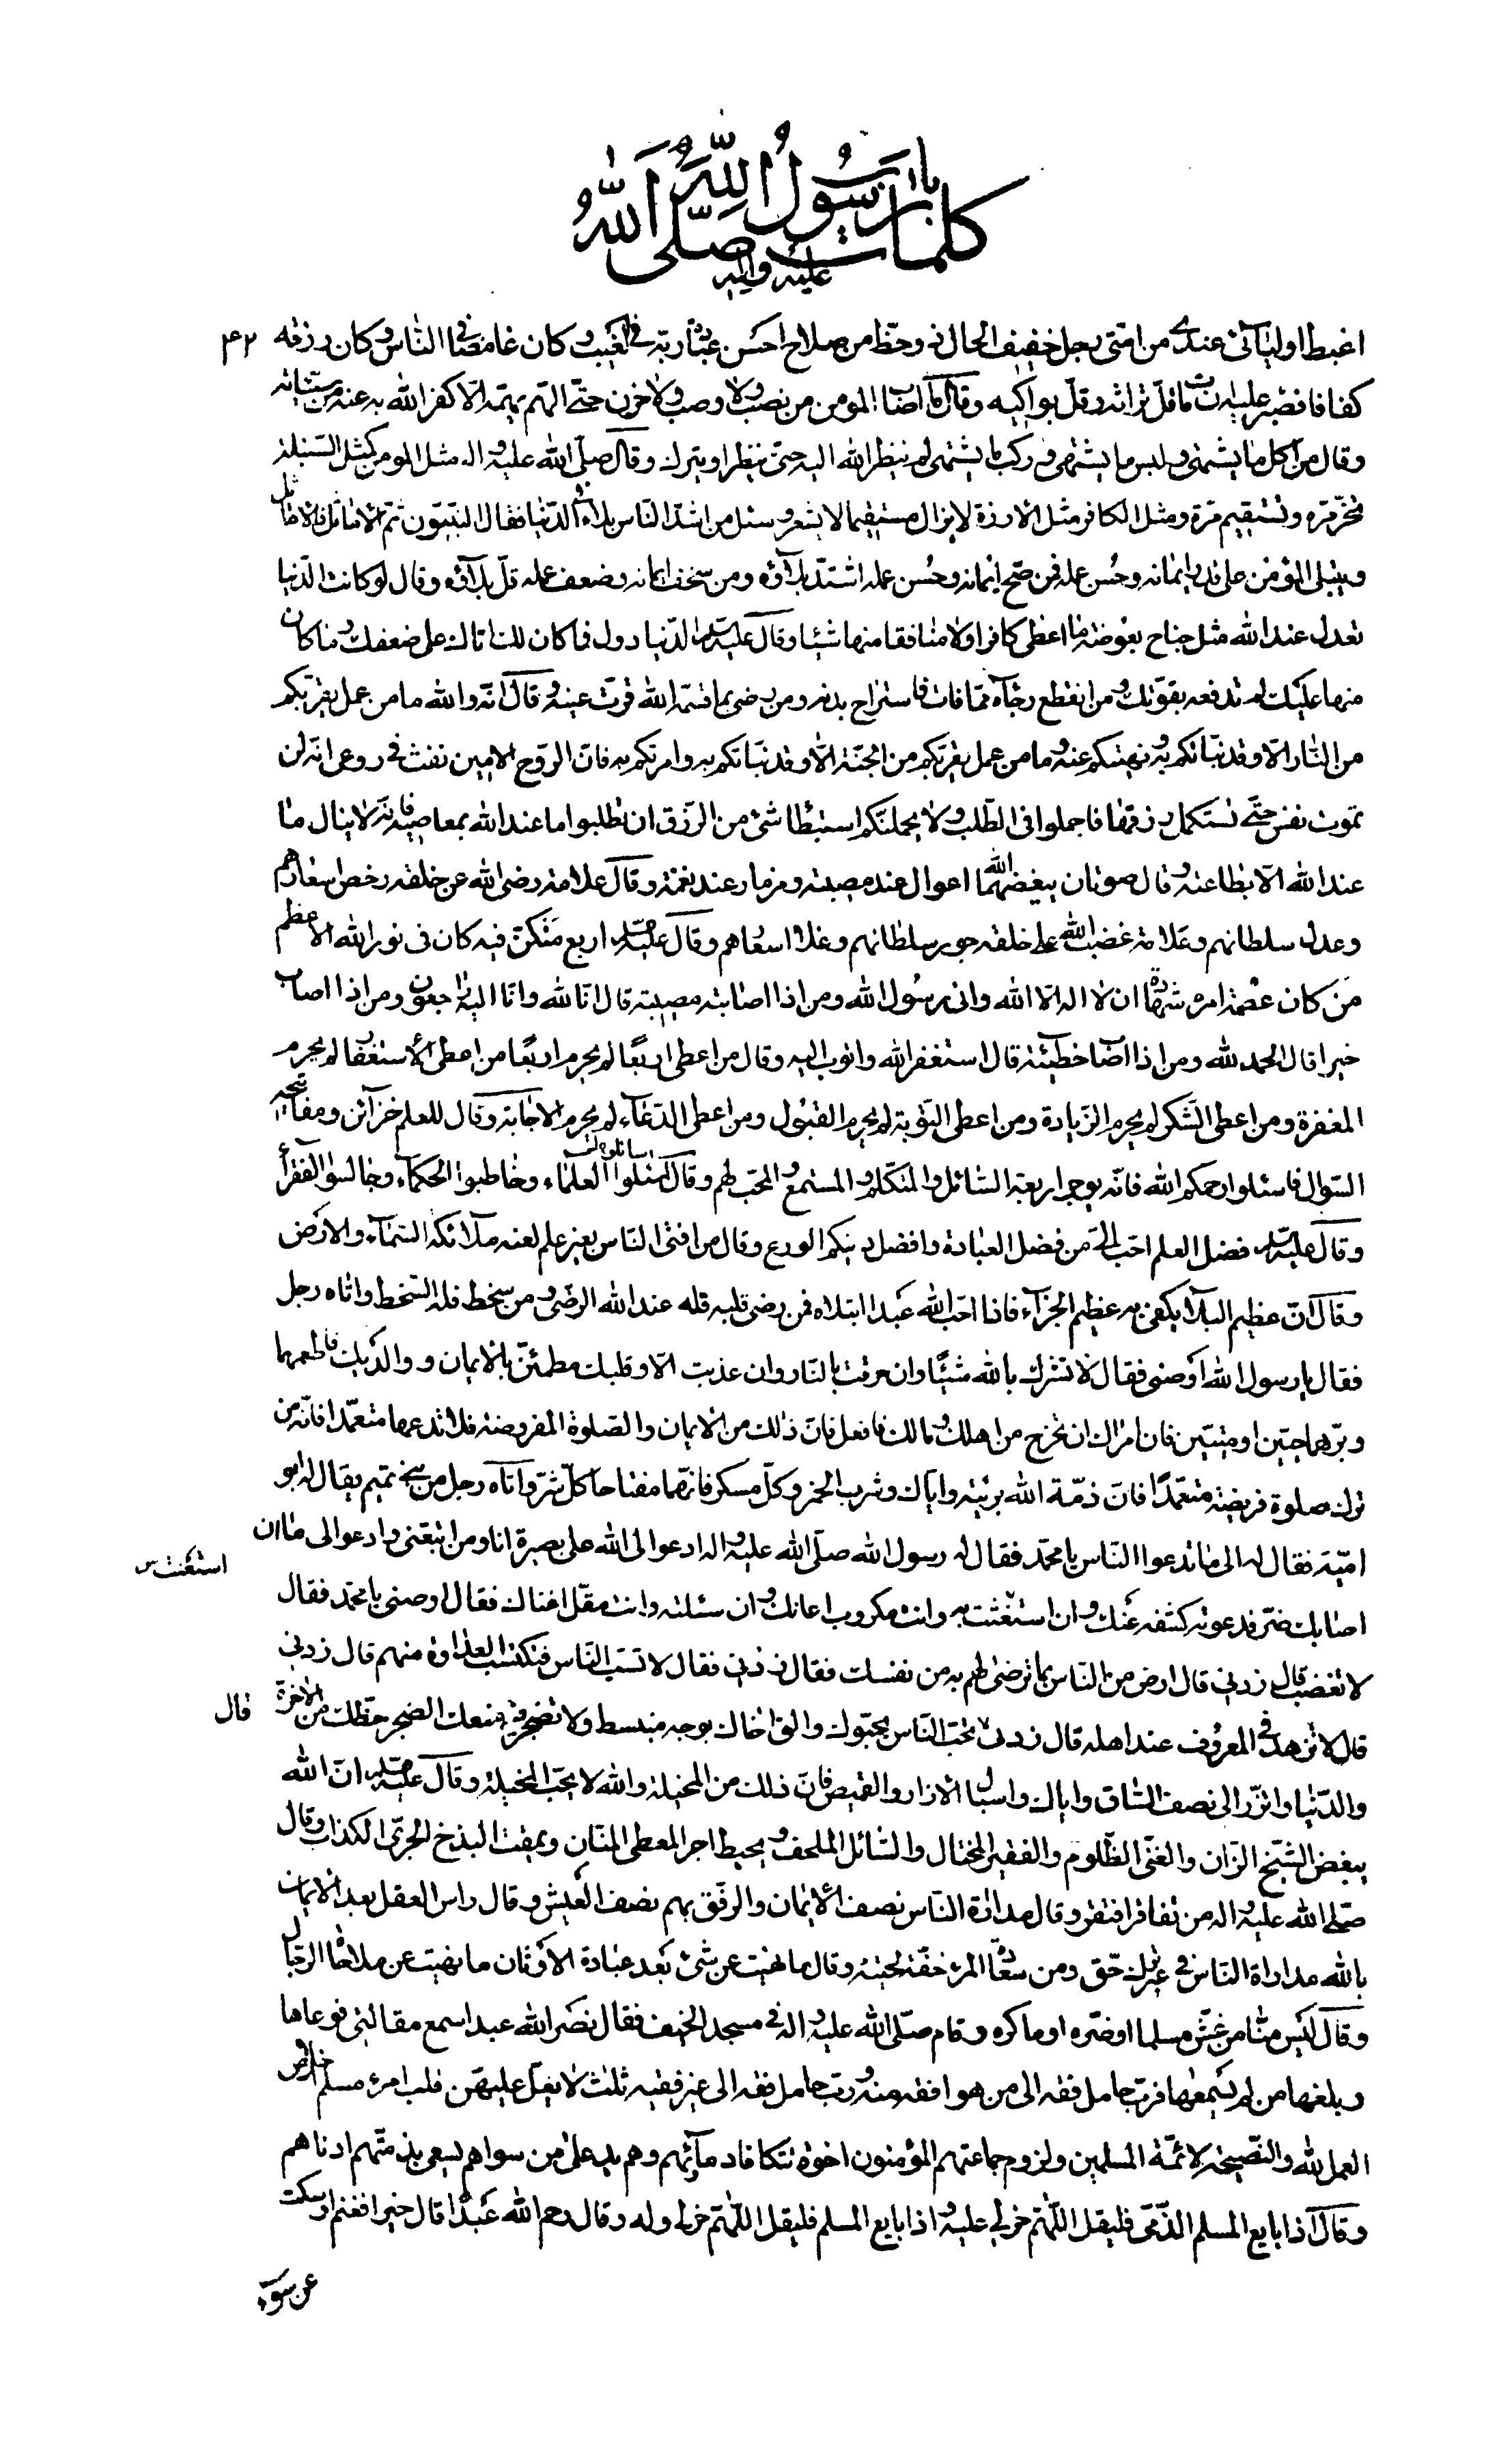 كلمات يا رسول الله صلى الله
عليه واله
٤٢
اغبط اوليائى عندى من امتى رجل خفيف الحال ذو حظ من صلاح احسن عبادة ربه فى الغيب و كان غامضا فى الناس و كان رزقه
كفافا فصبر عليه ان مات قل تراثه و قل بواكيه وقال ما اصاب المومن من نصب ولا وصب ولا حزن حتى الهم يهمه الا كفر الله به عنه من سيئاته
وقال من اكل ما يشتهى ولبس ما يشتهى و ركب ما يشتهى لم ينظر الله اليه حتى ينظر او يترك وقال صلى الله عليه واله مثل المومن كمثل السنبلة
تخر مرة وتستقيم مرة ومثل الكافر مثل الارزة لا يزال مستقيما لا يشعر و سئل من اشد الناس بلاء فى الدنيا فقال النبيون ثم الاماثل فالاماثل
ويبتلى المؤمن على قدر ايمانه وحسن عمله فمن صح ايمانه وحسن عمله اشتد بلاؤه ومن سخف ايمانه وضعف عمله قل بلاؤه وقال لو كانت الدنيا
تعدل عند الله مثل جناح بعوضة ما اعطى كافرا ولا منافقا منها شيئا وقال عليه السلام الدنيا دول فما كان لك اتاك على ضعفك وما كان
منها عليك لم تدفعه بقوتك و من انقطع رجاه مما فات استراح بدنه ومن رضى بما قسمه الله قرت عينه و قال انه والله ما من عمل يقربكم
من النار الا وقد نباتكم به و نهيتكم عنه و ما من عمل يقربكم من الجنة الا وقد نباتكم به وامرتكم به فان الروح الامين نفث فى روعى انه لن
تموت نفس حتى تستكمل رزقها فاجملوا فى الطلب ولا يحملنكم استبطا شئ من الرزق ان تطلبوا ما عند الله بمعاصيه فانه لا ينال ما
عند الله الا بطاعته و قال صوتان يبغضهما الله اعوال عند مصيبة ومزمار عند نعمة وقال علامة رضى الله عن خلقه رخص اسعارهم
وعدل سلطانهم وعلامة غضب الله على خلقه جور سلطانهم وغلا اسعارهم وقال عليه السلام اربع من كن فيه كان فى نور الله الاعظم
من كان عصمة امره شهادة ان لا اله الا الله وانى رسول الله ومن اذا اصابته مصيبة قال انا لله وانا اليه راجعون ومن اذا اصاب
خيرا قال الحمد لله ومن اذا اصاب خطيئة قال استغفر الله واتوب اليه وقال من اعطى اربعا لم يحرم اربعا من اعطى الاستغفار لم يحرم
المغفرة ومن اعطى الشكر لم يحرم الزيادة ومن اعطى التوبة لم يحرم القبول ومن اعطى الدعاء لم يحرم الاجابة وقال للعلم خزائن ومفاتيحه
السؤال فاسئلوا رحمكم الله فانه يوجر اربعة السائل والمتكلم و المستمع و المحب لهم وقال سئلوا العلماء وخاطبوا الحكماء وجالسوا الفقرأ
وقال عليه السلام فضل العلم احب الى من فضل العبادة وافضل دينكم الورع وقال من افتى الناس بغير علم لعنه ملائكة السماء والارض
وقال ان عظيم البلا يكفئ به عظيم الجزاء فاذا احب الله عبدا ابتلاه فمن رضى قلبه فله عند الله الرضى و من سخط فله السخط واتاه رجل
فقال يا رسول الله اوصنى فقال لا تشرك بالله شيئا وان حرقت بالنار وان عذبت الا وقلبك مطمئن بالايمان و والديك فاطعهما
وبرهما حيين او ميتين فان امراك ان تخرج من اهلك و مالك فافعل فان ذلك من الايمان والصلوة المفروضة فلا تدعها متعمدا فانه من
ترك صلوة فريضة متعمدا فان ذمة الله بريئة واياك وشرب الخمر وكل مسكر فانهما مفتاحا كل شر واتاه رجل من بنى تميم يقال له ابو
امية فقال له الى ما تدعوا الناس يا محمد فقال له رسول الله صلى الله عليه واله ادعو الى الله على بصيرة انا ومن اتبعنى وادعو الى من ان
اصابك ضر فدعوته كشفه عنك و ان استغثت به وانت مكروب اعانك و ان سئلته وانت مقل اغناك فقال اوصنى يا محمد فقال
استعنت س
لا تغضب قال زدنى قال ارض من الناس بما ترضى لهم به من نفسك فقال زدنى فقال لا تسب الناس فتكتسب العداوة منهم قال زدنى
قال لا تزهد فى المعروف عند اهله قال زدنى تحب الناس يحبوك والق اخاك بوجه منبسط ولا تضجر فيمنعك الضجر حظك من الاخرة
قال
والدنيا واتزر الى نصف الساق واياك واسبال الازار والقميص فان ذلك من المخيلة والله لا يحب المخيلة وقال عليه السلام ان الله
يبغض الشيخ الزان والغنى الظلوم والفقير المختال والسائل الملحف و يحبط اجر المعطى المنان ويمقت البذخ الجرى الكذاب وقال
صلى الله عليه واله من تفاقر افتقر وقال مداراة الناس نصف الايمان والرفق بهم نصف العيش وقال راس العقل بعد الايمان
بالله مداراة الناس فى غير ترك حق ومن سعادة المرء خفة لحيته وقال ما نهيت عن شئ بعد عبادة الاوثان ما نهيت عن ملاحاة الرجال
وقال ليس منا من غش مسلما او ضره او ماكره وقام صلى الله عليه واله فى مسجد الخيف فقال نضر الله عبدا سمع مقالتى فوعاها
وبلغها من لم يسمعها فرب حامل فقه الى من هو افقه منه و رب حامل فقه الى غير فقيه ثلث لا يغل عليهن قلب امرء مسلم اخلاص
العمل لله والنصيحة لائمة المسلمين ولزوم جماعتهم المؤمنون اخوة تتكافا دمائهم وهم يد على من سواهم يسعى بذمتهم ادناهم
وقال اذا بايع المسلم الذمى فليقل اللهم خر لى عليه و اذا بايع المسلم فليقل اللهم خر لى وله وقال رحم الله عبدا قال خيرا فغنم او سكت
عن سوء